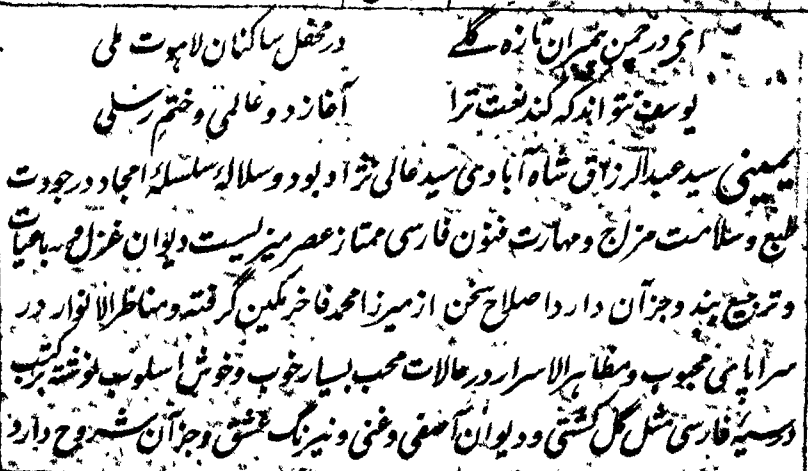 ای در چمن پیمبران تازه گلے در محفل ساکنان لاهوت ملی
یوسف نتواند که کند نعت ترا آغاز دو عالمی و ختم رسلی
یمینی سید عبدالرزاق شاه آبادی سید عالی نژاد بود و سلالۀ سلسلۀ امجاد در جودت
طبع و سلامت مزاج و مهارت فنون فارسی ممتاز عصر میزیست دیوان غزل و رباعیات
و ترجیع بند و جز آن دارد اصلاح سخن از میرزا محمد فاخر مکین گرفته و مناظر الانوار در
سراپای محبوب و مظاهر الاسرار در حالات محب بسیار خوب و خوش اسلوب نوشته بر کتب
درسیۀ فارسی مثل گل کشتی و دیوان آصفی و غنی و نیرنگ عشق و جز آن شروح دارد